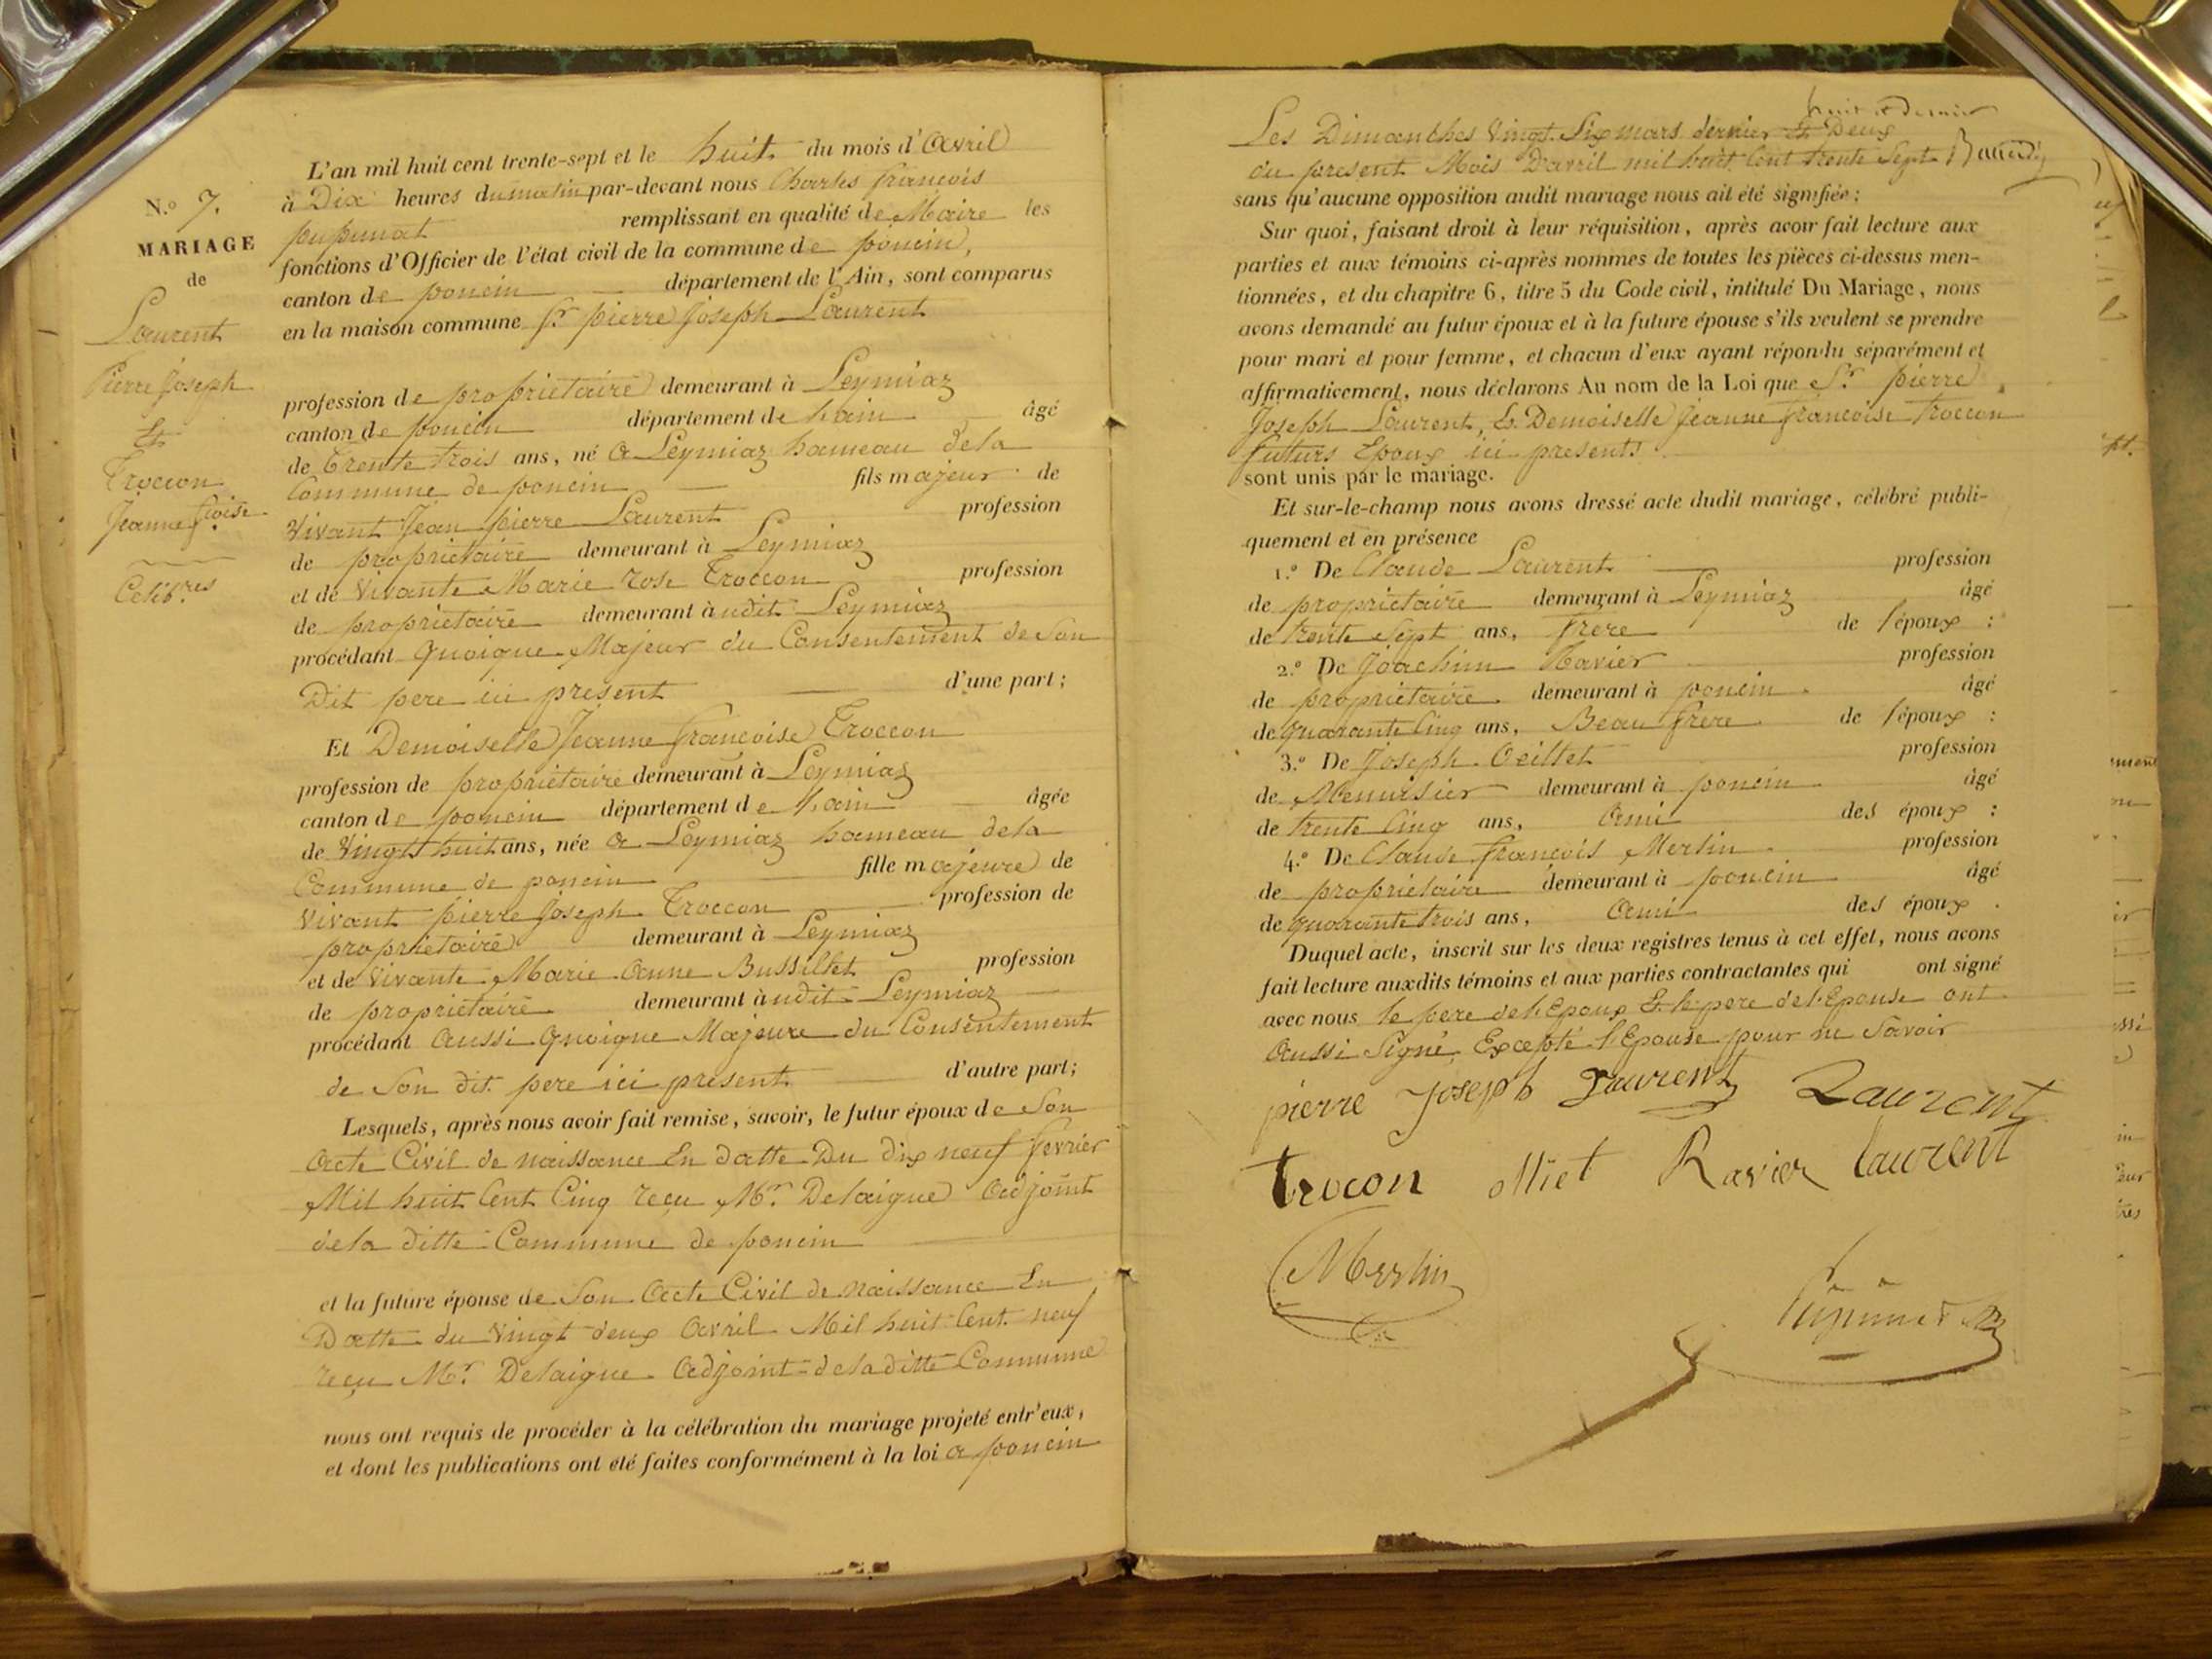 N.º 7.
MARIAGE
de
Laurent
Pierre Joseph
Et
Troccon
Jeanne f.oise
Célib.res
L'an mil huit cent trente-sept et le huit du mois d'Avril
à Dix heures du matin par-devant nous Charles françois
pupunat remplissant en qualité de Maire les
fonctions d'Officier de l'état civil de la commune de poncin,
canton de poncin département de l'Ain, sont comparus
en la maison commune S.r pierre Joseph Laurent
profession de propriétaire demeurant à Leymiaz
canton de poncin département de lain âgé
de Trente trois ans, né a Leymiaz hameau dela
Commune de poncin fils majeur de
Vivant Jean pierre Laurent profession
de propriétaire demeurant à Leymiaz
et de Vivante Marie rose Troccon profession
de propriétaire demeurant àudit Leymiaz
procédant quoique Majeur du Consentement de Son
Dit pere ici present d'une part;
Et Demoiselle Jeanne françoise Troccon
profession de propriétaire demeurant à Leymiaz
canton de poncin département de lain âgée
de Vingt huit ans, née a Leymiaz hameau dela
Commune de poncin fille majeure de
Vivant pierre Joseph Troccon profession de
propriétaire demeurant à Leymiaz
et de Vivante Marie Anne Bussillet profession
de propriétaire demeurant àudit Leymiaz
procédant Aussi quoique Majeure du Consentement
de Son dit pere ici present d'autre part;
Lesquels, après nous avoir fait remise, savoir, le futur époux de Son
Acte Civil de naissance En datte Du dix neuf fevrier
Mil huit Cent Cinq reçu M.r Delaigue Adjoint
dela ditte Commune de poncin
et la future épouse de Son Acte Civil de naissance En
Datte du Vingt deux Avril Mil huit Cent neuf
reçu M.r Delaigue Adjoint dela ditte Commune
nous ont requis de procéder à la célébration du mariage projeté entr'eux,
et dont les publications ont été faites conformément à la loi a poncin
Les Dimanches Vingt Six mars dernier Et Deux
du present Mois D'avril mil huit Cent trente Sept
sans qu'aucune opposition audit mariage nous ait été signifiée;
Sur quoi, faisant droit à leur réquisition, après avoir fait lecture aux
parties et aux témoins ci-après nommes de toutes les pièces ci-dessus men-
tionnées, et du chapitre 6, titre 5 du Code civil, intitulé Du Mariage, nous
avons demandé au futur époux et à la future épouse s'ils veulent se prendre
pour mari et pour femme, et chacun d'eux ayant répondu séparément et
affirmativement, nous déclarons Au nom de la Loi que S.r pierre
Joseph Laurent, Et Demoiselle Jeanne françoise Troccon
futurs Epoux ici presents
sont unis par le mariage.
Et sur-le-champ nous avons dressé acte dudit mariage, célébré publi-
quement et en présence
1.º De Claude Laurent profession
de propriétaire demeurant à Leymiaz âgé
de trente Sept ans, frere de l'époux :
2.º De Joachim Ravier profession
de propriétaire demeurant à poncin âgé
de quarante Cinq ans, Beau frere de l'époux :
3.º De Joseph Oeillet profession
de Menuisier demeurant à poncin âgé
de trente Cinq ans, Ami des époux :
4.º De Claude françois Merlin profession
de propriétaire demeurant à poncin âgé
de quarante trois ans, Ami des époux .
Duquel acte, inscrit sur les deux registres tenus à cet effet, nous avons
fait lecture auxdits témoins et aux parties contractantes qui ont signé
avec nous le pere de l'Epoux Et le pere de l'Epouse ont
Aussi Signé, Excepté l'Epouse pour ne Savoir
pierre Joseph Laurent Laurent
trocon Ravier laurent
Merlin